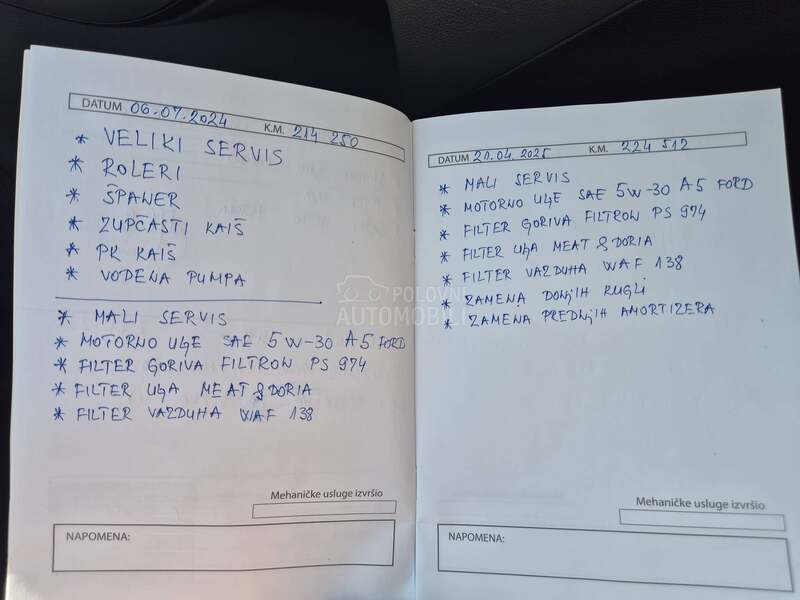 DATUM 06.07.2024 K.M. 214 250
* VELIKI SERVIS
* ROLERI
* ŠPANER
* ZUPČASTI KAIŠ
* PK KAIŠ
* VODENA PUMPA
* MALI SERVIS
* MOTORNO ULJE SAE 5W-30 A5 FORD
* FILTER GORIVA FILTRON PS 974
* FILTER ULJA MEAT & DORIA
* FILTER VAZDUHA WAF 138
Mehaničke usluge izvršio
NAPOMENA:
DATUM 21.04.2025 K.M. 224 512
* MALI SERVIS
* MOTORNO ULJE SAE 5W-30 A5 FORD
* FILTER GORIVA FILTRON PS 974
* FILTER ULJA MEAT & DORIA
* FILTER VAZDUHA WAF 138
* ZAMENA DONJIH KUGLI
* ZAMENA PREDNJIH AMORTIZERA
Mehaničke usluge izvršio
NAPOMENA:
POLOVNI
AUTOMOBILI